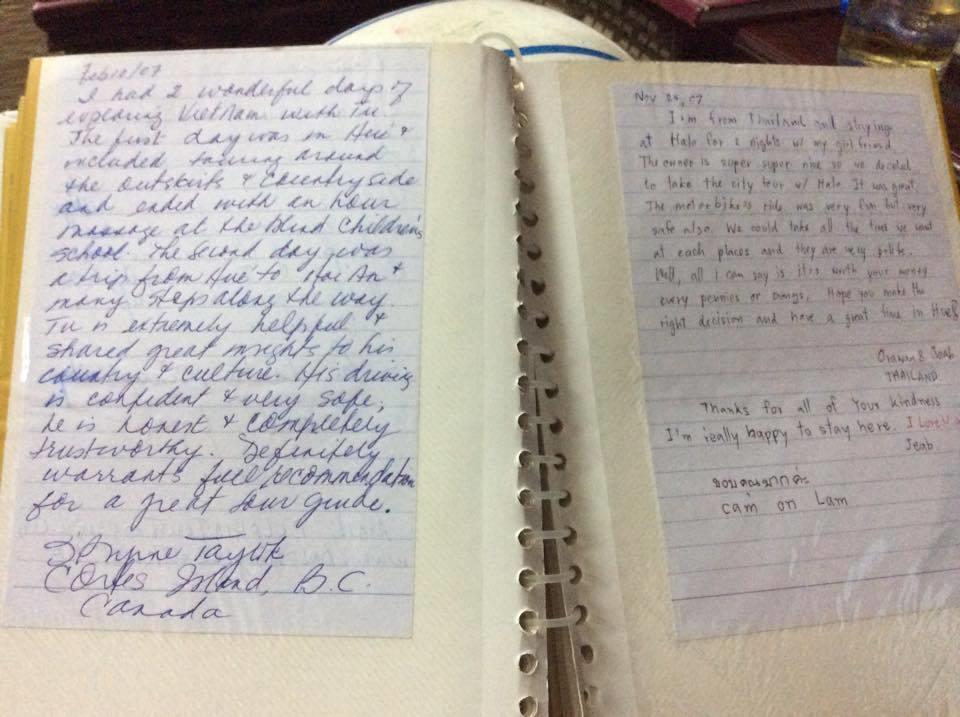 Feb 10/07
I had 2 wonderful days of
exploring VietNam with Tu.
The first day was in Hue &
included touring around
the outskirts & Countryside
and ended with an hour
massage at the Blind Children's
school. The second day was
a trip from Hue to Hoi An &
many stops along the way.
Tu is extremely helpful &
shared great insights to his
country & culture. His driving
is confident & very safe;
he is honest & completely
trustworthy. Definitely
warrants full recommendation
for a great tour guide.
Taylor
Cortes Island, B.C.
Canada
Nov 24, 07
I'm from Thailand and staying
at Halo for 2 nights w/ my girlfriend.
The owner is super super nice so we decided
to take the city tour w/ Halo. It was great.
The motorbikes ride was very fun but very
safe also. We could take all the time we want
at each places and they are very polite.
Well, all I can say is it's worth your money
every pennies or Dongs. Hope you make the
right decision and have a great time in Hue!
& Jeab
THAILAND
Thanks for all of Your kindness
I'm really happy to stay here. I Love
Jeab
ขอบคุณมากค่ะ
cảm on Lam